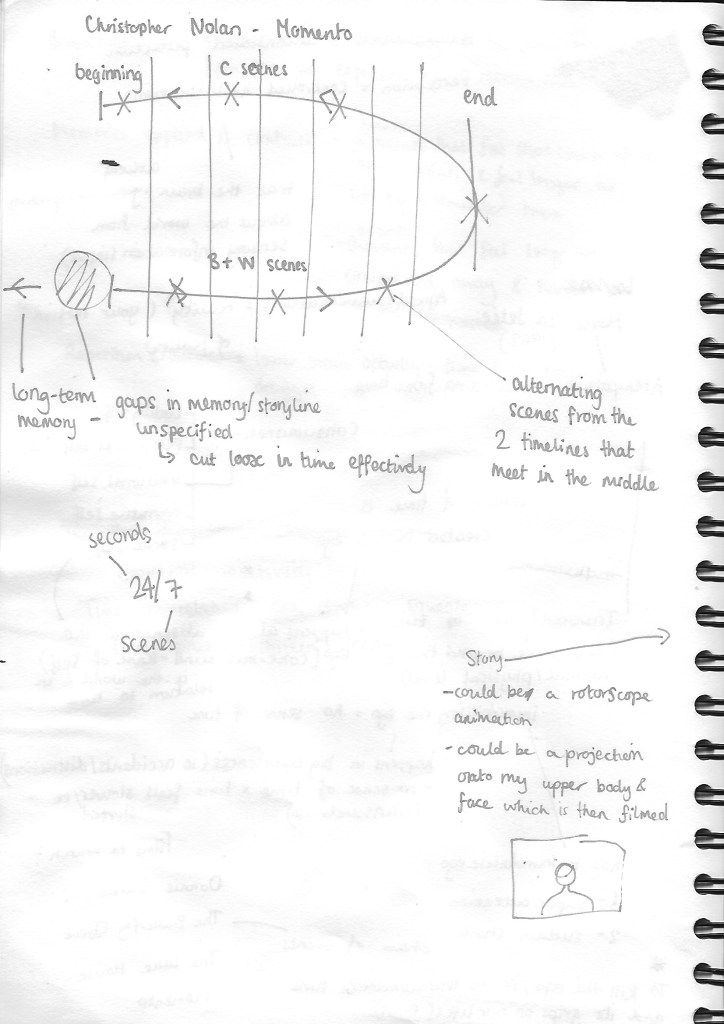 Christopher Nolan - Momento
beginning
C scenes
end
B+W scenes
long-term
memory - gaps in memory/storyline
unspecified
↳ cut loose in time effectively
alternating
scenes from the
2 timelines that
meet in the middle
seconds
24/7
scenes
Story
- could be a rotorscope
animation
- could be a projection
onto my upper body &
face which is then filmed